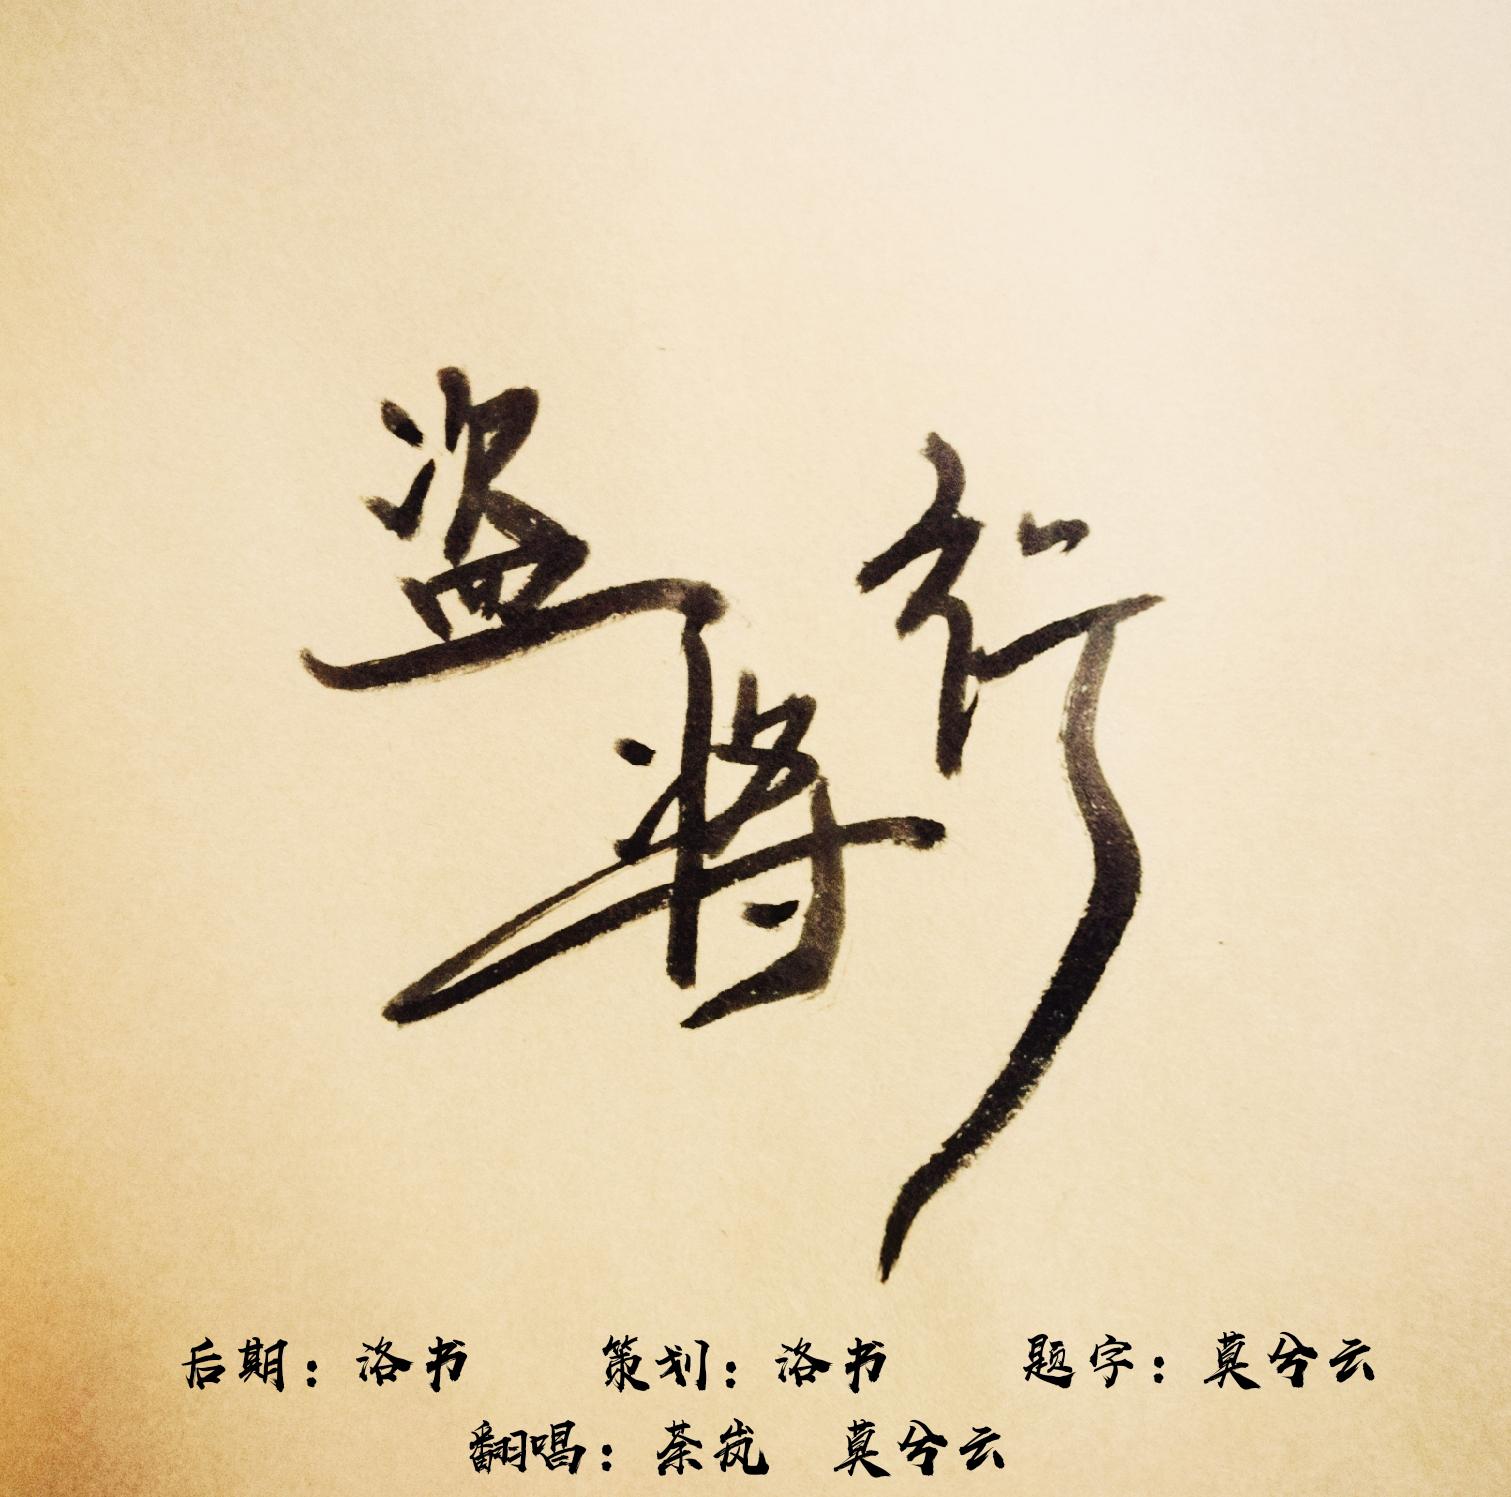 盗将行
后期：洛书 策划：洛书 题字：莫兮云
翻唱：荼岚 莫兮云